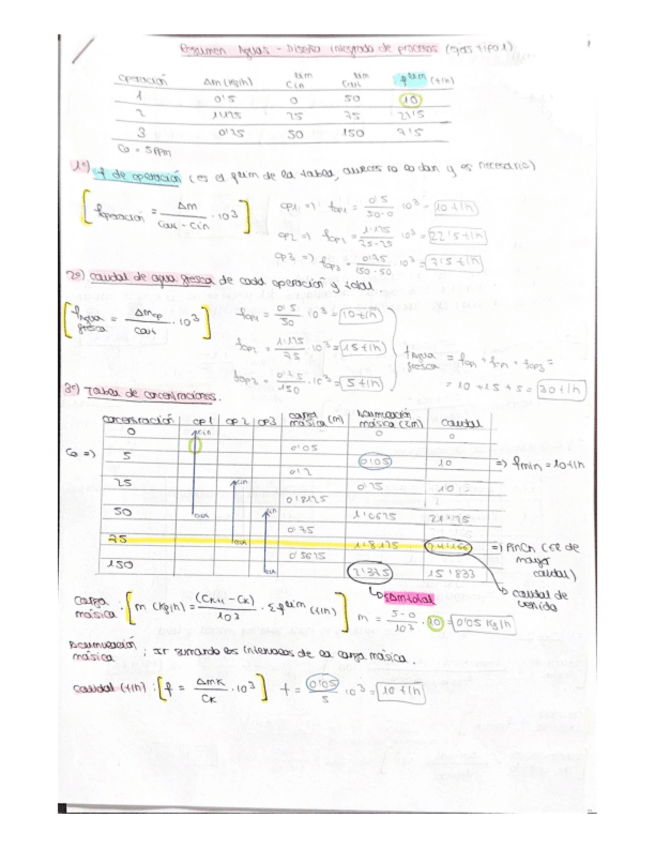 Resumen Aguas - Diseño integrado de procesos (ejerc tipo 1)
operación Δm (kg/h) C lim in C lim out f lim (t/h)
1 0'5 0 50 10
2 1'125 25 75 22'5
3 0'75 50 150 7'5
Co = 5 ppm
1º) f de operación (es el f lim de la tabla, a veces no lo dan y es necesario)
[ f operación = Δm / (Cout - Cin) · 10³ ]
op1 => fop1 = 0'5 / (50-0) · 10³ = 10 t/h
op2 => fop1 = 1'125 / (75-25) · 10³ = 22'5 t/h
op3 => fop3 = 0'75 / (150-50) · 10³ = 7'5 t/h
2º) caudal de agua fresca de cada operación y total.
[ f agua fresca = Δmop / Cout · 10³ ]
fop1 = 0'5 / 50 · 10³ = 10 t/h
fop2 = 1'125 / 75 · 10³ = 15 t/h
fop3 = 0'75 / 150 · 10³ = 5 t/h
f agua fresca = fop1 + fop2 + fop3 =
= 10 + 15 + 5 = 30 t/h
3º) Tabla de concentraciones.
concentración op1 op2 op3 carga másica (m) Acumulación másica (Σm) caudal
0 Cin 0 0
0'05
Co => 5 0'05 10 => fmin = 10 t/h
0'2
25 Cin 0'25 10
0'8125
50 Cout Cin 1'0625 21'25
0'75
75 Cout 1'8125 24'166 => PINCH (es de mayor caudal)
0'5625
150 Cout 2'375 15'833
Δm total
caudal de vertido
carga másica : [ m (kg/h) = (Ck+1 - Ck) / 10³ · Σ f lim (t/h) ] m = (5-0) / 10³ · 10 = 0'05 kg/h
Acumulación másica : ir sumando los intervalos de la carga másica.
caudal (t/h) : [ f = Δmk / Ck · 10³ ] f = 0'05 / 5 · 10³ = 10 t/h